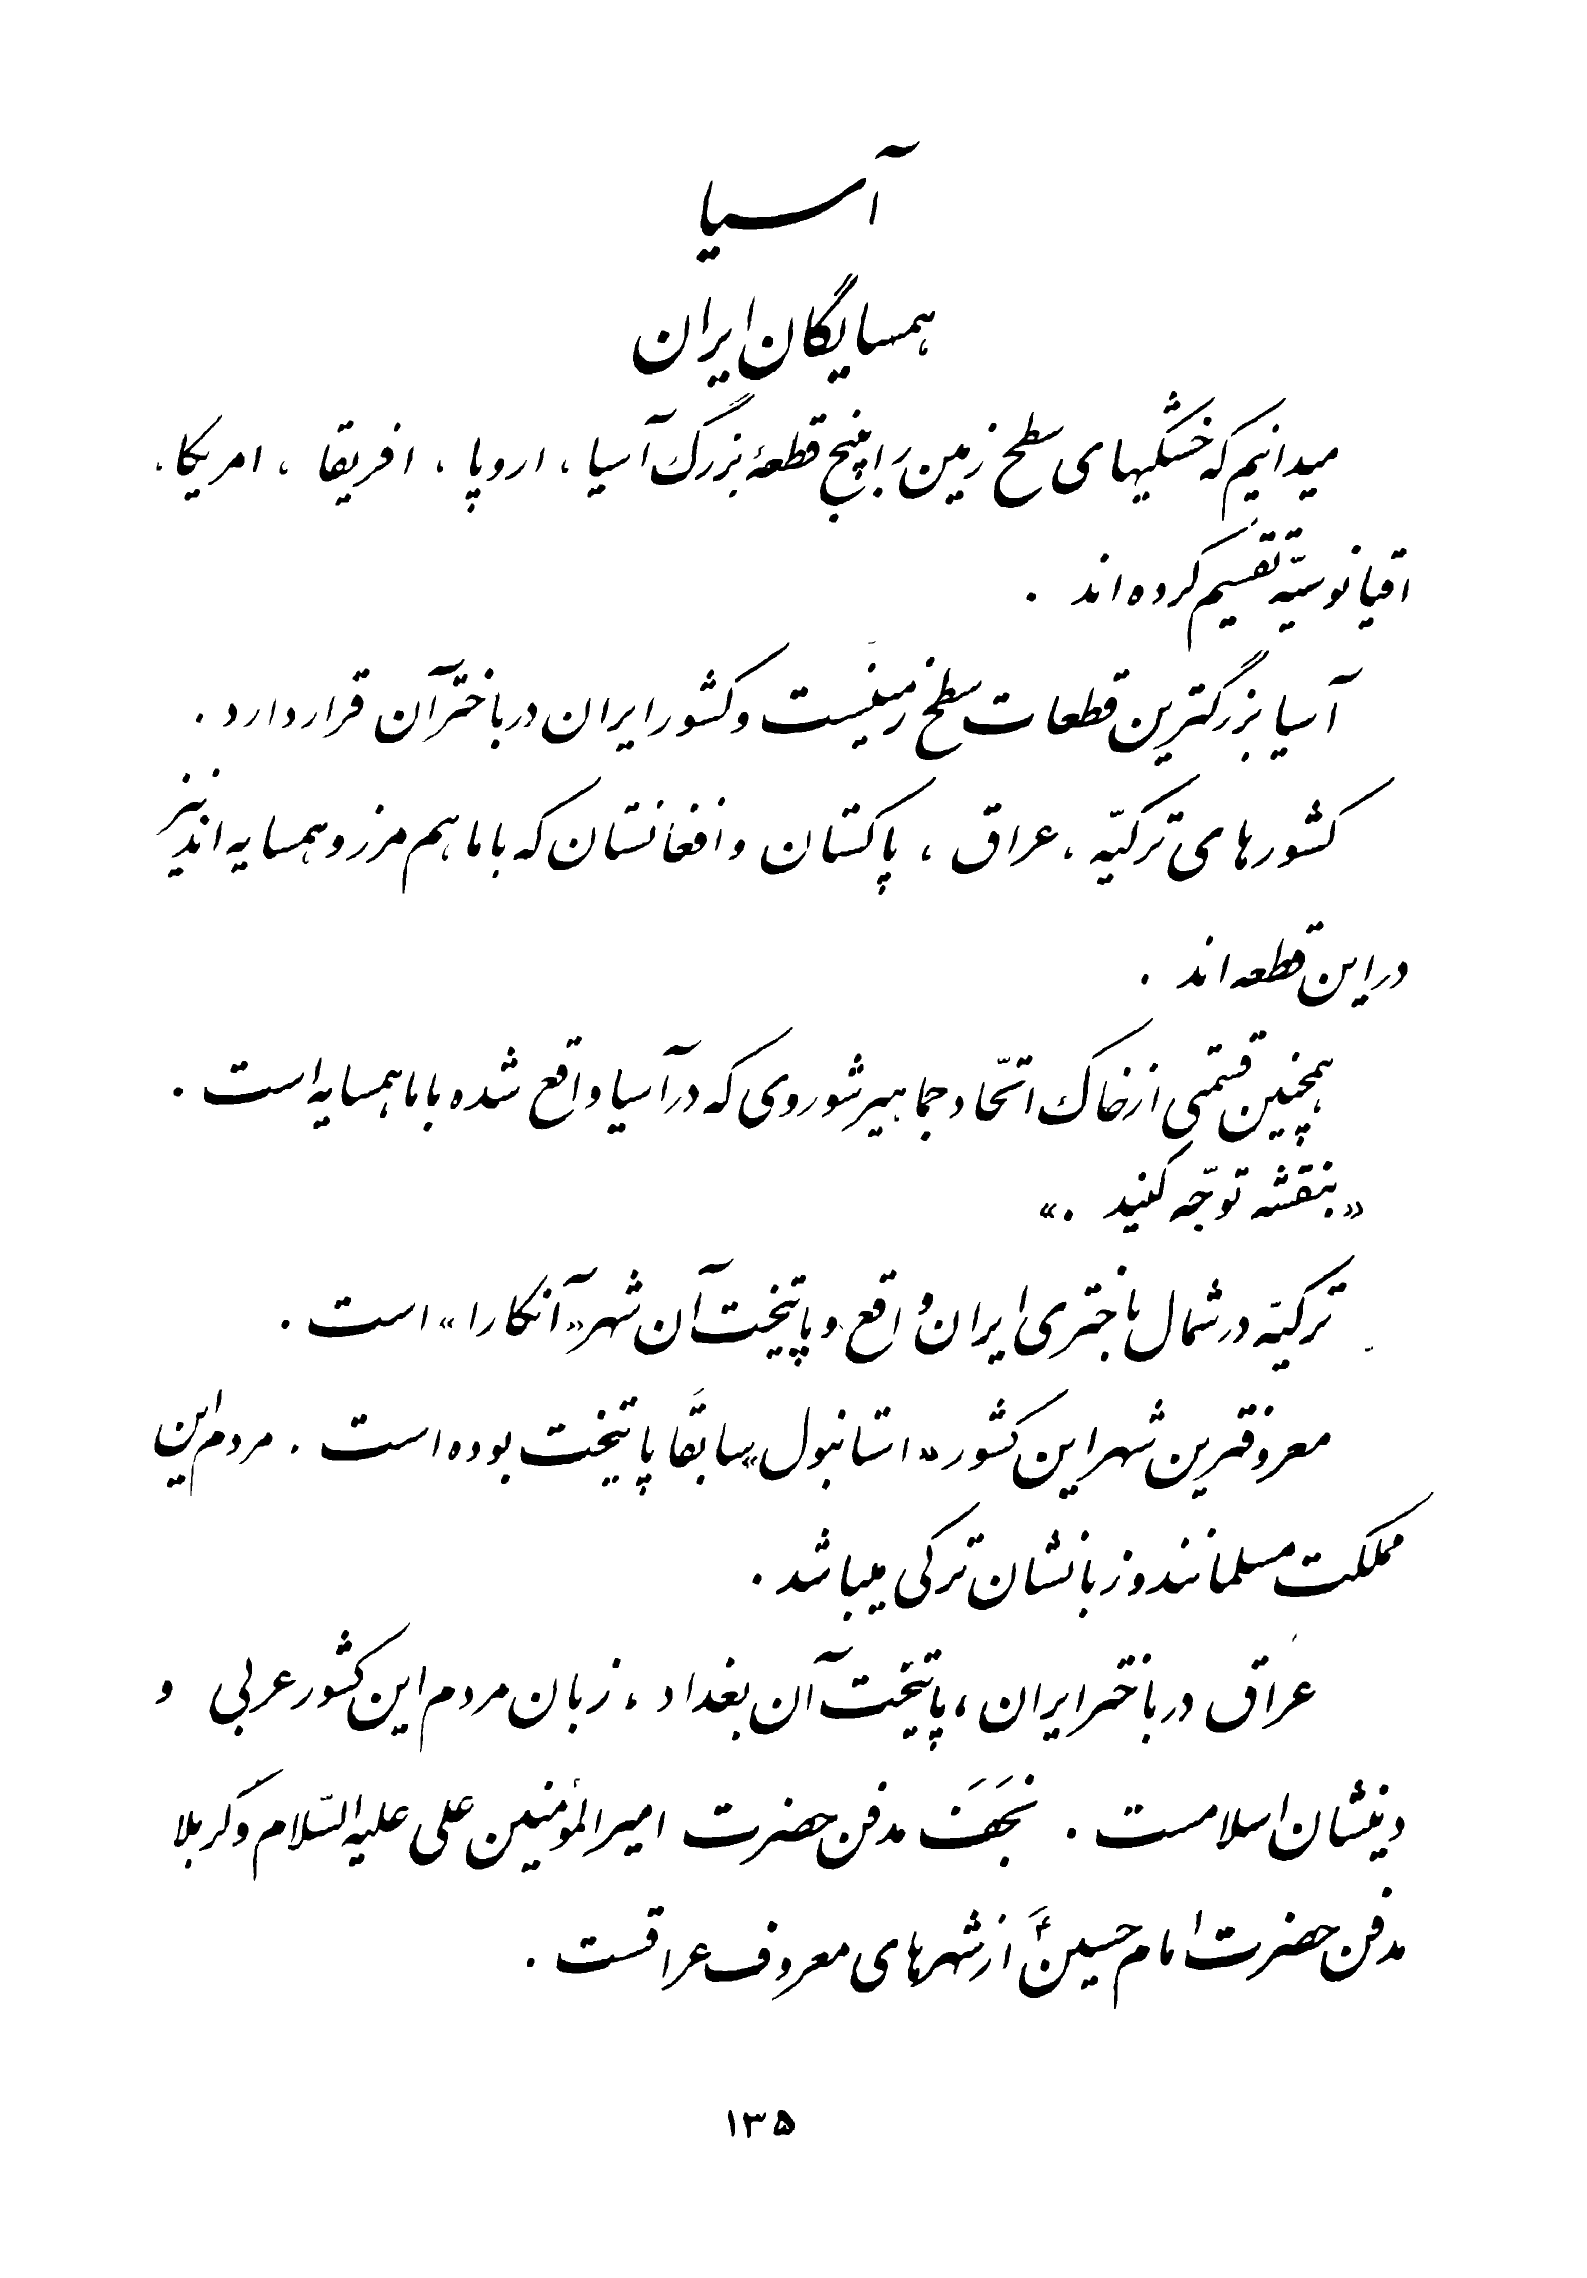 آسیا
همسایگان ایران
میدانیم که خشکیهای سطح زمین را بپنج قطعهٔ بزرگ آسیا ، اروپا ، افریقا ، امریکا ،
اقیانوسیّه تقسیم کرده اند .
آسیا بزرگترین قطعات سطح زمینست و کشور ایران در باختر آن قرار دارد .
کشورهای ترکیّه ، عراق ، پاکستان و افغانستان که با ما هم مرز و همسایه اند نیز
در این قطعه اند .
همچنین قسمتی از خاک اتّحاد جماهیر شوروی که در آسیا واقع شده با ما همسایه است .
«بنقشه توجّه کنید .»
ترکیّه در شمال باختری ایران واقع و پایتخت آن شهر «آنکارا» است .
معروفترین شهر این کشور «استانبول» سابقاً پایتخت بوده است . مردم این
مملکت مسلمانند و زبانشان ترکی میباشد .
عراق در باختر ایران ، پایتخت آن بغداد ، زبان مردم این کشور عربی و
دینشان اسلامست . نَجَف مدفن حضرت امیرالمؤمنین علی علیه السّلام و کربلا
مدفن حضرت امام حسین ؑ از شهرهای معروف عراقست .
۱۳۵